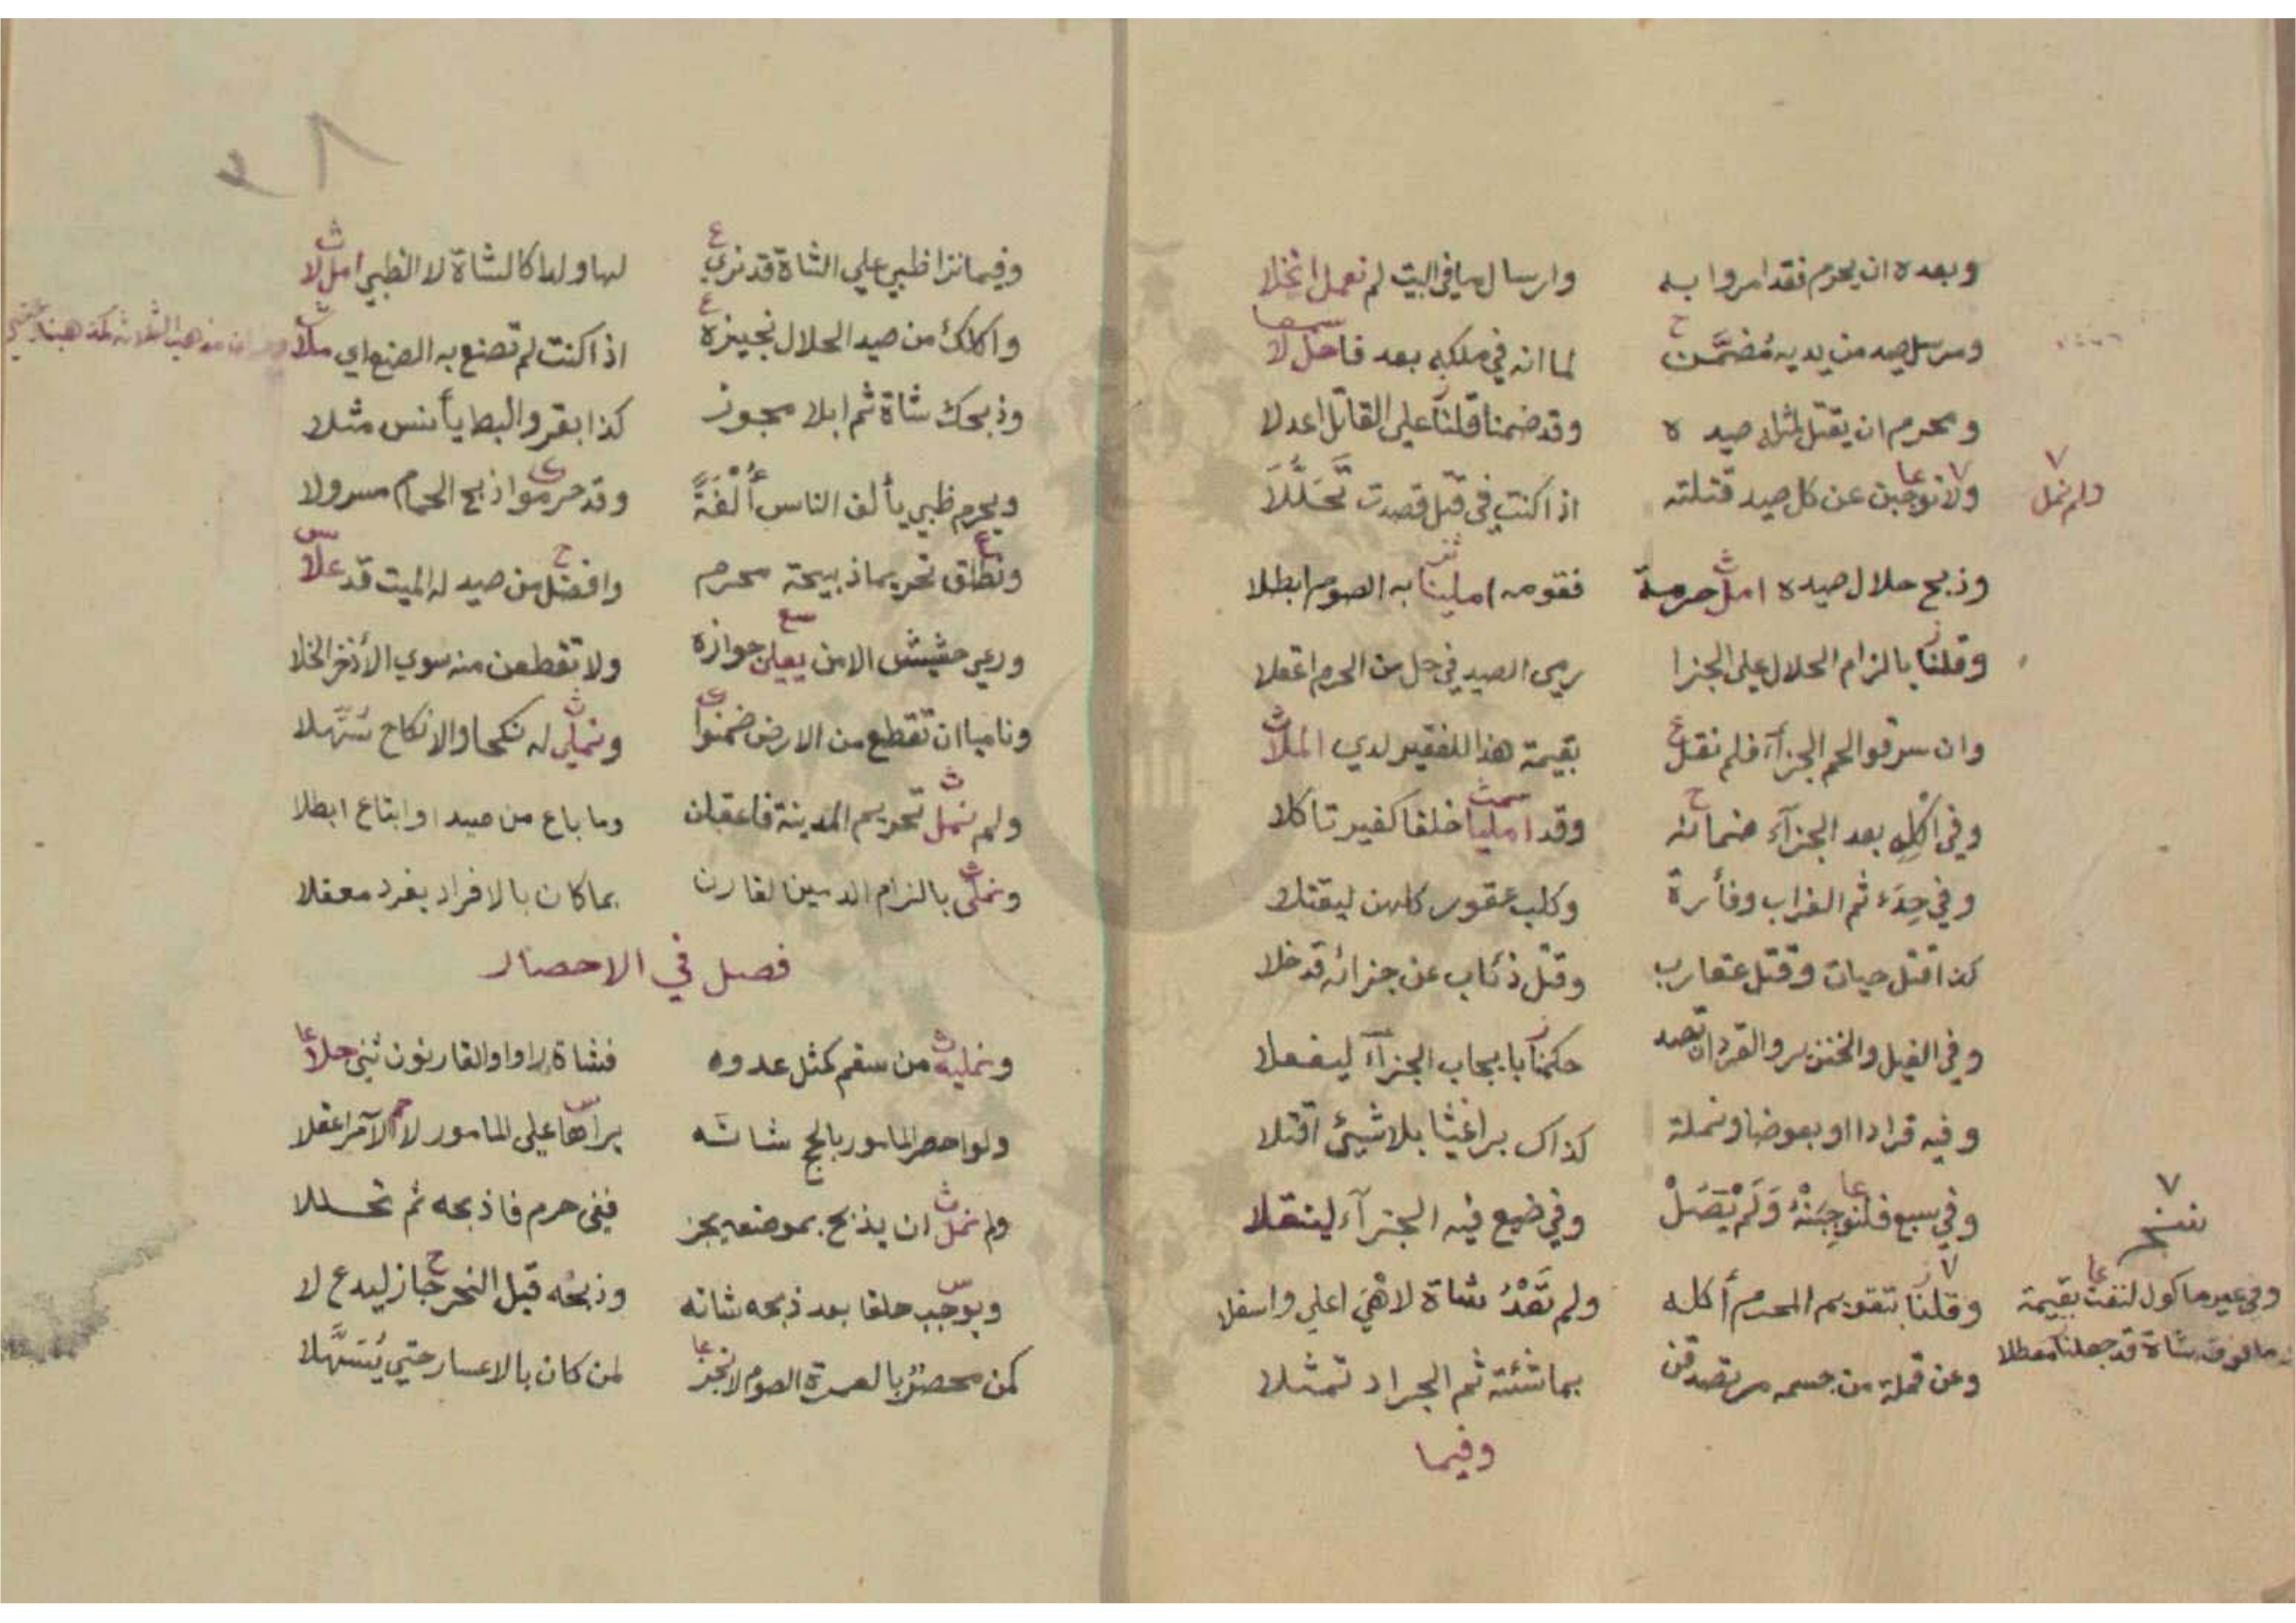 وبعده ان يحرم فقد امروا به وارسال ما في البيت لم نعمل انخلا
ومرسل صيد من يديه مضمن لما انه في ملكه بعد فاحل لا
ومحرم ان يقتل لمثله صيده وقد ضمنا قلنا على القاتل اعدلا
ولا نوجبن عن كل صيد قتلته اذا كنت في قتل قصدت تحللا
ولم نمل
وذبح حلال صيده امل حرمة فقومه املينا به الصوم ابطلا
وقلنا بالزام الحلال على الجزا رمى الصيد في حل من الحرم اعقلا
وان سرقوا لحم الجزآء فلم نقل بقيمة هذا للفقير لدي الملا
وفي اكله بعد الجزآء ضمانه وقد امليا خلفا كغير تاكلا
وفي حدء ثم الغراب وفأرة وكلب عقور كلهن ليقتلا
كذا قتل حيات وقتل عقارب وقتل ذئاب عن جزائه قد خلا
وفي الفيل والخنزير والقرد ان تصد حكمنا بايجاب الجزآء ليفعلا
وفيه قرادا او بعوضا ونملة كذاك براغيثا بلا شيئ اقتلا
وفي سبع فلنوجبنه ولم يصل وفي ضبع فيه الجزآء لينقلا
نسخ
وقلنا بتقويم المحرم أكله ولم تعد شاة لا هي اعلي واسفلا
وفي غير ماكول لنفت بقيمة
وما فوق شاة قد جعلنا معطلا
وعن قملة من جسمه مر تصدقن بما شئته ثم الجراد تمثلا
وفيما
وفيما نزا ظبي علي الشاة قد نري لها ولدا كالشاة لا الظبي امل لا
واكلك من صيد الحلال نجيزه اذا كنت لم تصنع به الصنع اي ملا
وذبحك شاة ثم ابلا مجوز كذا بقر والبط يأنس مثلا
ويحرم ظبي يألف الناس ألفة وقد حرموا ذبح الحمام مسرولا
ونطلق تحريما ذبيحة محرم وافضل من صيد له الميت قد علا
ورعي حشيش الامن يعلن جوازه ولا تقطعن منه سوي الأذخر الخلا
وناميا ان تقطع من الارض ضمنوا ونملي له نكحا والانكاح سهلا
ولم نمل تحريم المدينة فاعقبان وما باع من صيد او ابتاع ابطلا
ونملي بالزام الدمين لقارن بما كان بالافراد يفرد معقلا
فصل في الاحصار
ونمليه من سقم كمثل عدوه فشاة راوا والقارنون ثني جلا
ولو احصر المامور بالحج شاته يراها على المامور لا الآمر اعقلا
ولم نمل ان يذبح بموضعه يجز ففي حرم فاذبحه ثم تحللا
ويوجب حلقا بعد ذبحه شاته وذبحه قبل النحر جاز ليدع لا
كمن محصر بالعمرة الصوم لا نجز لمن كان بالاعسار حتي يسهلا